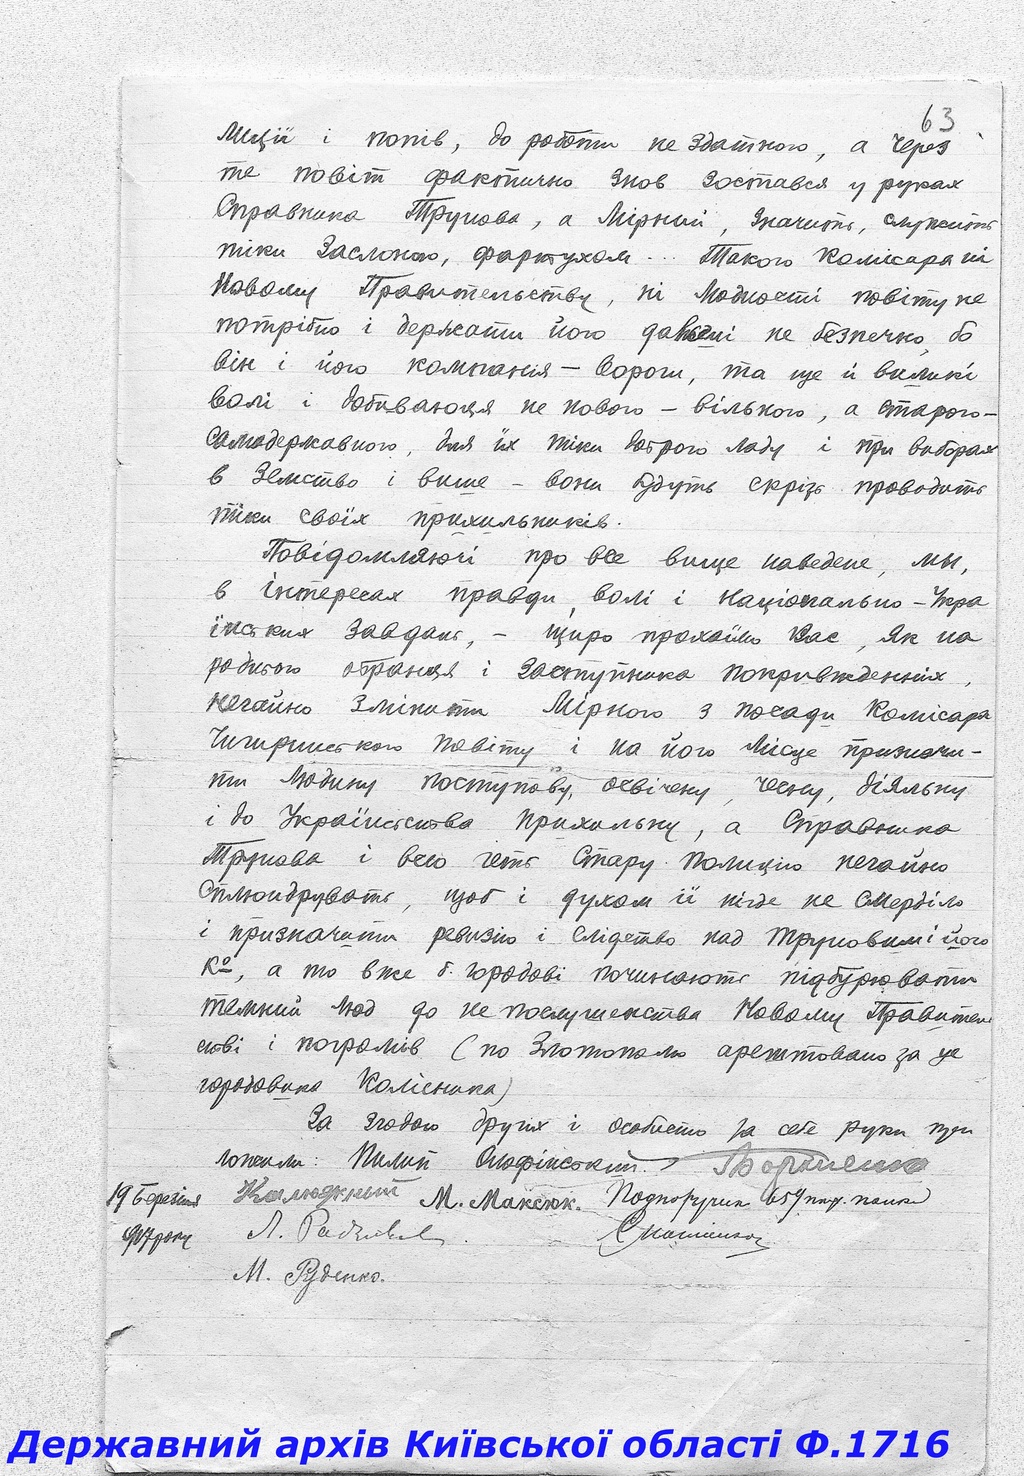 63
лиції і попів, до роботи не здатного, а через
те повіт фактично знов зостався у руках
Справника Трунова, а Мірний, значить, служить
тіки заслоною, фартухом... Такого комісара ні
Новому Правительству, ні людности повіту не
потрібно і держати його давні не безпечно, бо
він і його компанія – вороги, та ще й великі
волі і добиваюця не нового – вільного, а старого –
самодержавного, для їх тіки доброго ладу і при виборах
в Земство і вище – вони будуть скрізь проводить
тіки своїх прихильників.
Повідомляючі про все вище наведене, ми,
в інтересах правди, волі і національно – Укра
їнських завдань, – щиро прохаємо Вас, як на
родного обранця і заступника покривжденних,
негайно змінити Мірного з посади Комісара
Чигиринського повіту і на його місце призначи-
ти людину поступову, освічену, чесну, діяльну
і до Українства прихильну, а Справника
Трунова і всю геть стару полицію негайно
сплюндрувать, щоб і духом її нігде не смерділо
і призначити ревизію і слідство над Труновим і його
Кº, а то вже б. городові починають підбурювати
темний люд до не послушенства Новому Правитель
стві і погромів (по Златополю арештовано за це
городовика Колісника)
За згодою других і особисто за себе руки при
ложили: Пилип Борленко
19 Березіля Калюжний М. Максюк. Подпоручик 659 пих. полка
917 року Л.
М. Руденко.
Державний архів Київської області Ф.1716